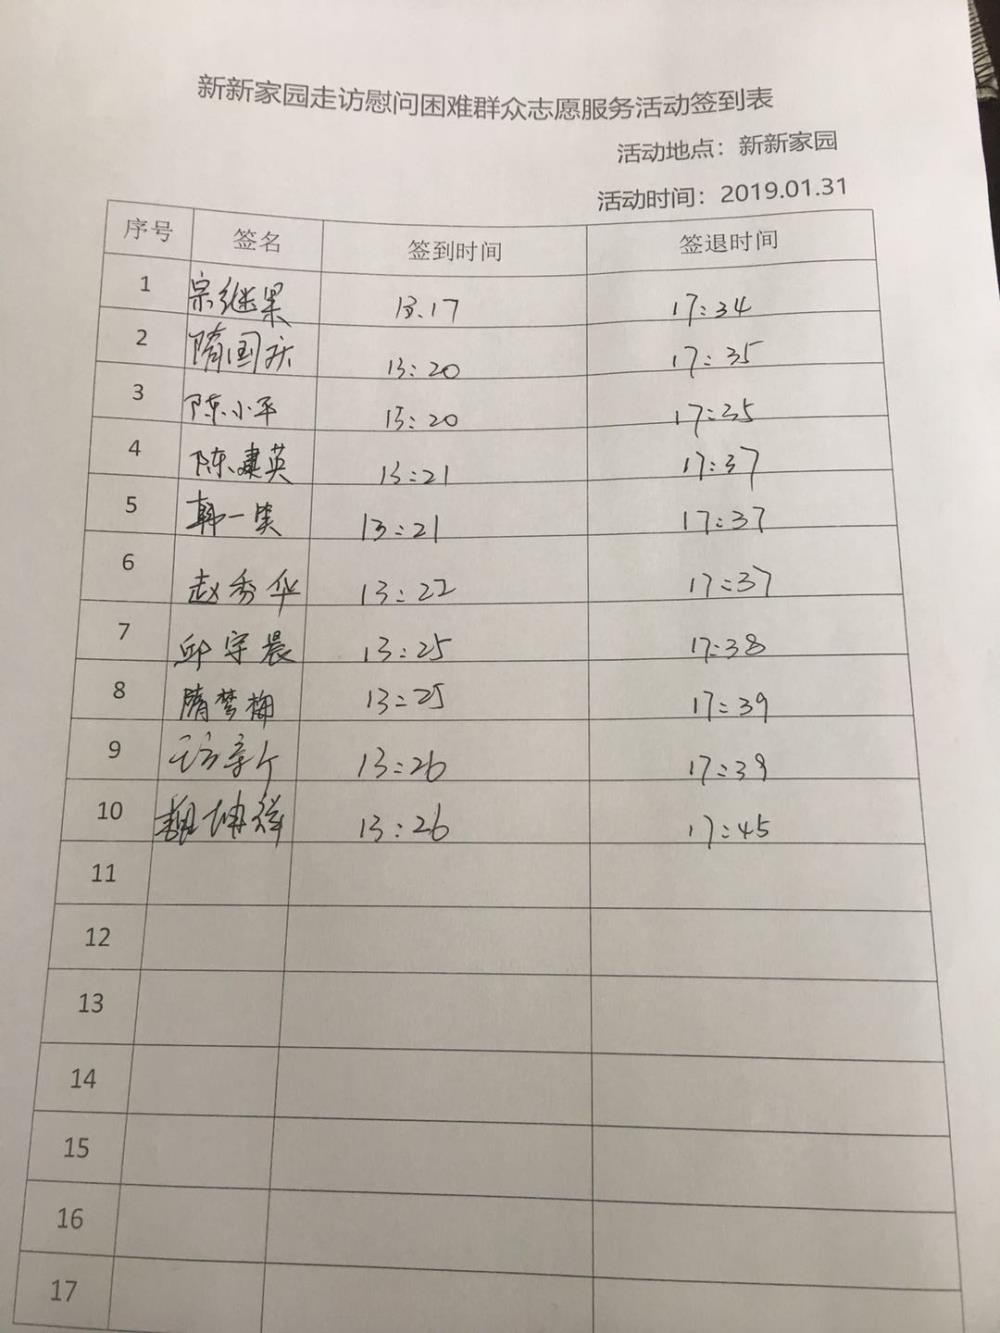 新新家园走访慰问困难群众志愿服务活动签到表
活动地点：新新家园
活动时间：2019.01.31
序号 签名 签到时间 签退时间
1 宗继果 13.17 17:34
2 隋国庆 13:20 17:35
3 陈小平 13:20 17:35
4 陈建英 13:21 17:37
5 韩一 13:21 17:37
6 赵秀华 13:22 17:37
7 邱宇晨 13:25 17:38
8 隋梦梅 13:25 17:39
9 13:26 17:39
10 魏坤祥 13:26 17:45
11
12
13
14
15
16
17